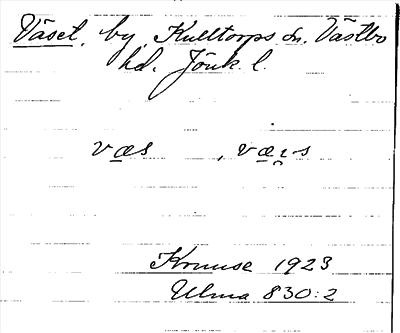 Väset, by, Kulltorps sn. Västbo
hd. Jönk. l.
væs , væi̯-s
Kruuse 1923
Ulma 830:2